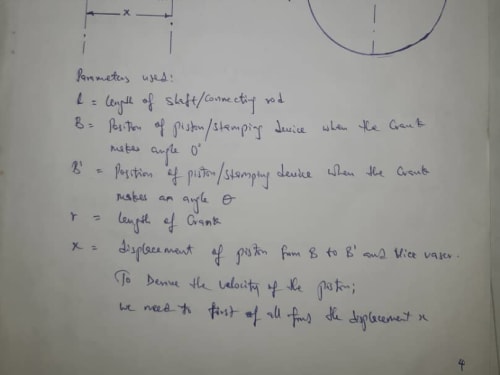 x
Parameters used:
l = length of shaft/connecting rod
B = Position of piston/stamping device when the Crank
makes angle 0°
B' = Position of piston/stamping device when the Crank
makes an angle θ
r = length of Crank
x = displacement of piston from B to B' and Vice vaser.
To Derive the velocity of the piston;
we need to first of all find the displacement x
4